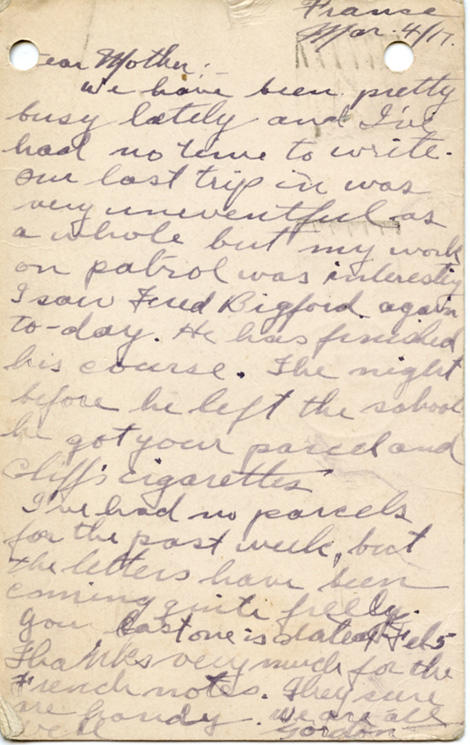 France
Mar. 4/17.
ear Mother:-
We have been pretty
busy lately and I've
had no time to write.
Our last trip in was
very uneventful as
a whole but my work
on patrol was interesting
I saw Fred Bigford again
to-day. He has finished
his course. The night
before he left the school
he got your parcel and
Cliff's cigarettes
I've had no parcels
for the past week, but
the letters have been
coming quite freely.
You last one is dated Feb 5
Thanks very much for the
French notes. They sure
are handy. We are all
well Gordon